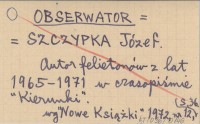 OBSERWATOR =
= SZCZYPKA Józef.
Autor felietonów z lat
1965-1971 w czasopiśmie
"Kierunki".
wg "Nowe Książki" 1972, nr 12,
s. 36